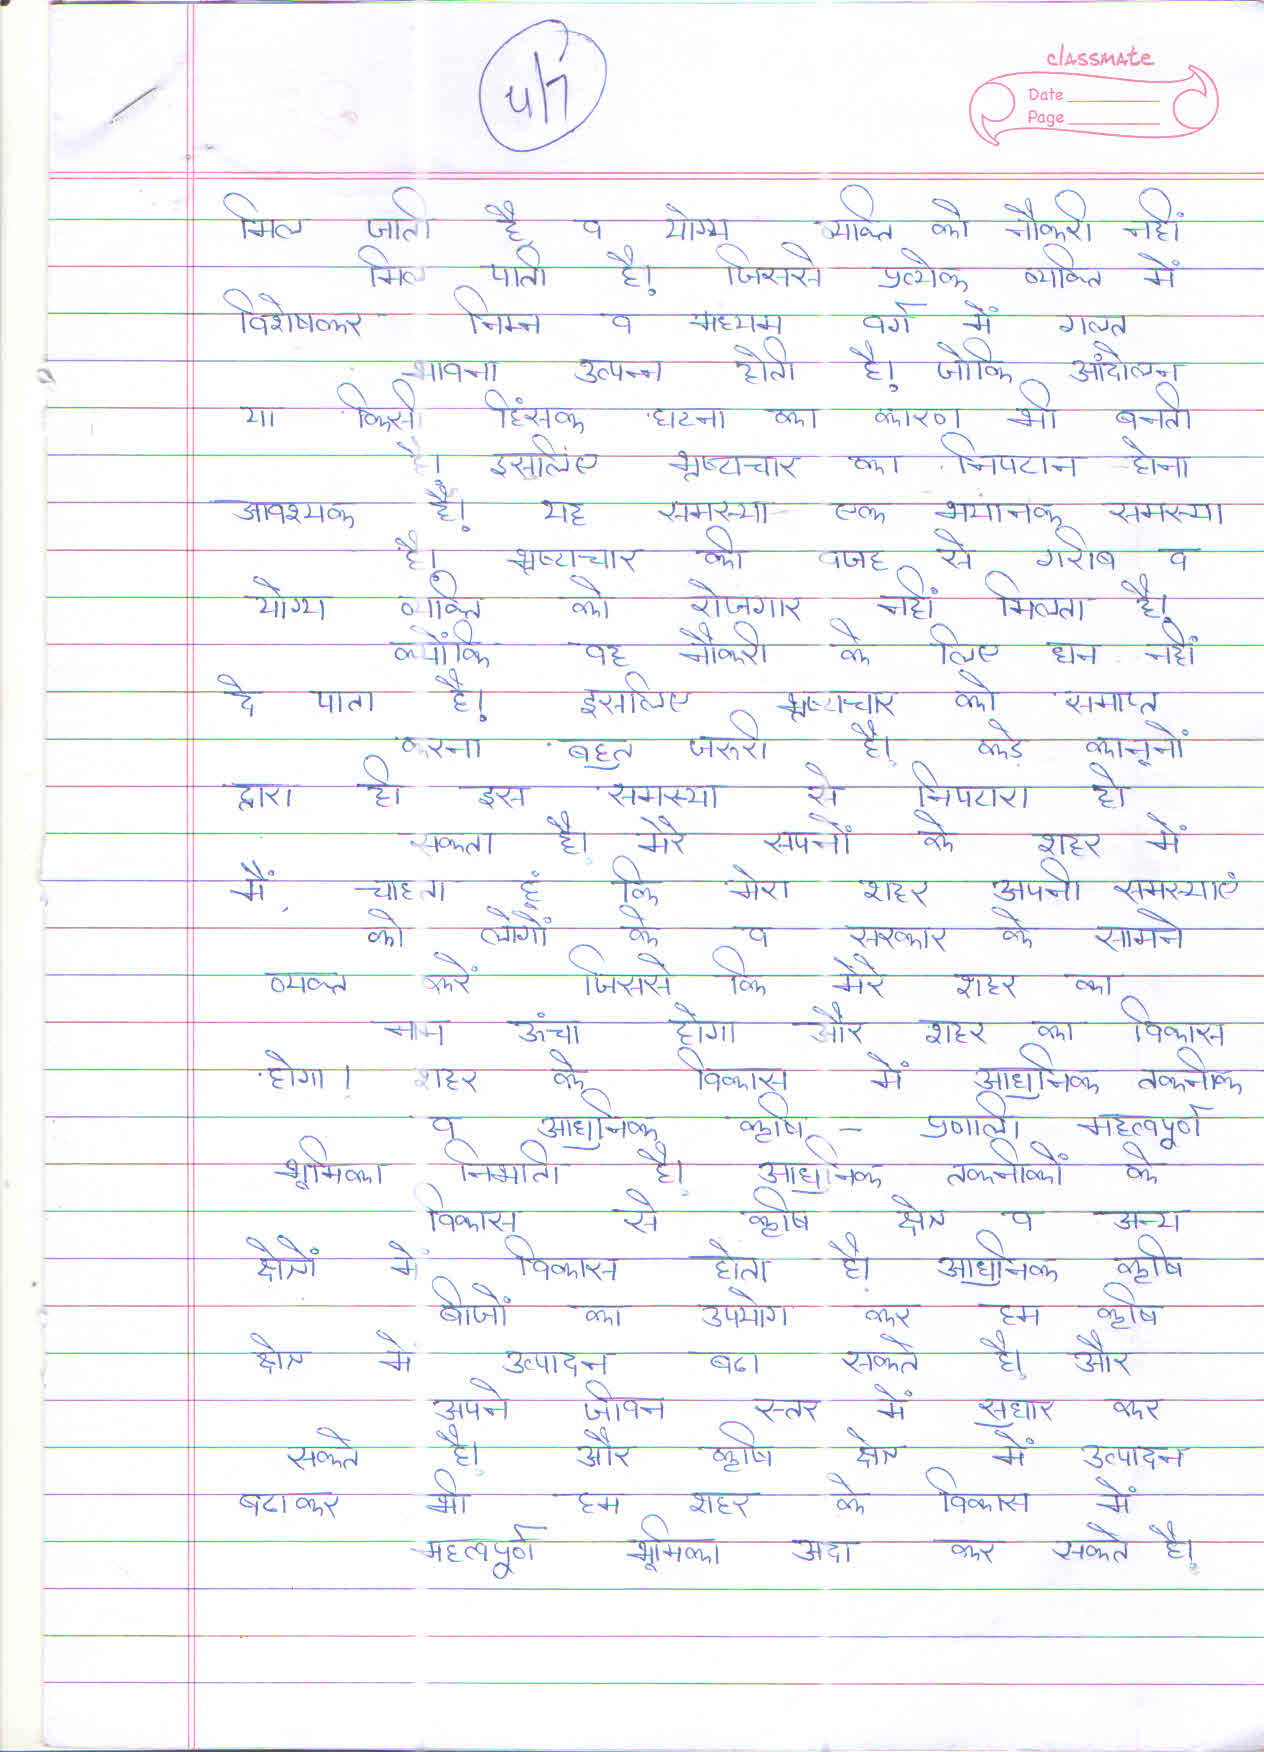 4/7
classmate
Date
Page
मिल जाती है, व योग्य व्यक्ति को नौकरी नहीं
मिल पाती है। जिससे प्रत्येक व्यक्ति में
विशेषकर निम्न व मध्यम वर्ग में गलत
भावना उत्पन्न होती है। जोकि आंदोलन
या किसी हिंसक घटना का कारण भी बनती
है। इसलिए भ्रष्टाचार का निपटान होना
आवश्यक है। यह समस्या एक भयानक समस्या
है। भ्रष्टाचार की वजह से गरीब व
योग्य व्यक्ति को रोजगार नहीं मिलता है।
क्योंकि वह नौकरी के लिए धन नहीं
दे पाता है। इसलिए भ्रष्टाचार को समाप्त
करना बहुत जरूरी है। कड़े कानूनों
द्वारा ही इस समस्या से निपटारा हो
सकता है। मेरे सपनों के शहर में
मैं चाहता हूं कि मेरा शहर अपनी समस्याएं
को लोगों के व सरकार के सामने
व्यक्त करें जिससे कि मेरे शहर का
नाम ऊंचा होगा और शहर का विकास
होगा। शहर के विकास में आधुनिक तकनीक
व आधुनिक कृषि - प्रणाली महत्वपूर्ण
भूमिका निभाती है। आधुनिक तकनीकों के
विकास से कृषि क्षेत्र व अन्य
क्षेत्रों में विकास होता है। आधुनिक कृषि
बीजों का उपयोग कर हम कृषि
क्षेत्र में उत्पादन बढा सकते है। और
अपने जीवन स्तर में सुधार कर
सकते है। और कृषि क्षेत्र में उत्पादन
बढाकर भी हम शहर के विकास में
महत्वपूर्ण भूमिका अदा कर सकते है।